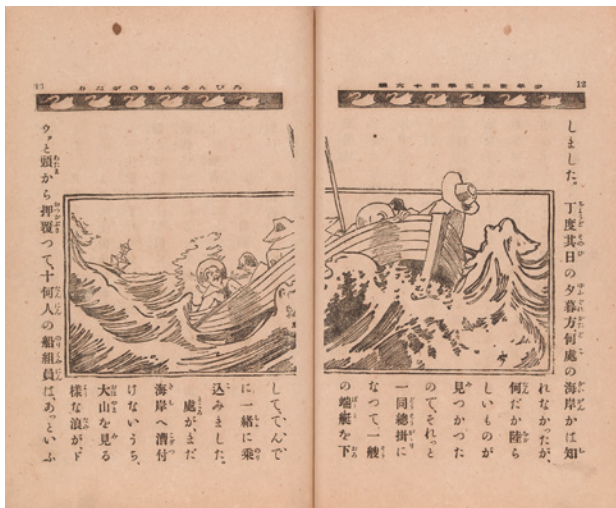 12
しました。丁度其日の夕暮方、何處の海岸かは知
れなかつたが、
何だか陸ら
しいものが
見つかつた
ので、それつと
一同總掛に
なつて、一艘
の端艇を下
ろびんそんものがたり
して、てんで
に一緒に乘
込みました。
處が、まだ
海岸へ漕付
けないうち、
大山を見る
樣な浪が、ド
ウッと頭から押覆つて、十何人の船組員は、あつといふ